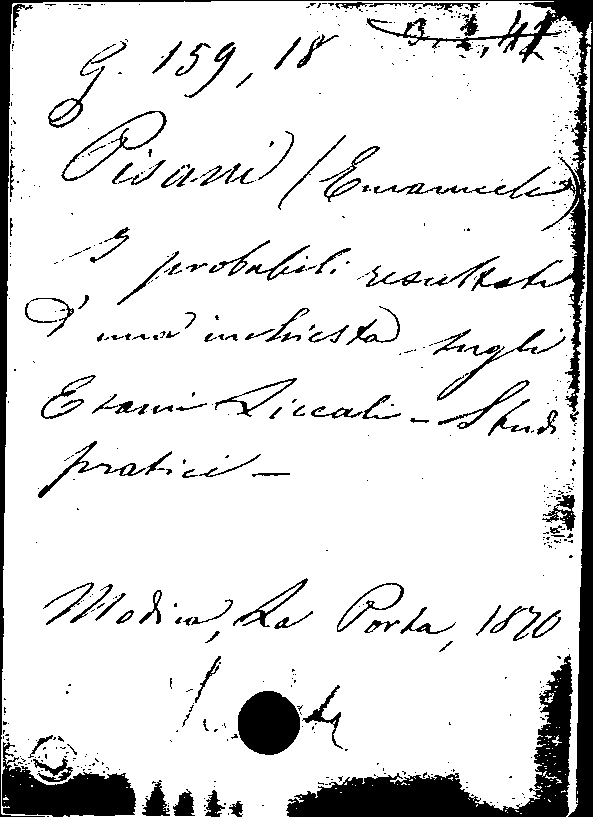 G. 159, 18
Pisani (Emanuele)
I probabili resultati
d'una inchiesta sugli
Esami Liceali - Studi
pratici -
Modica, La Porta, 1870